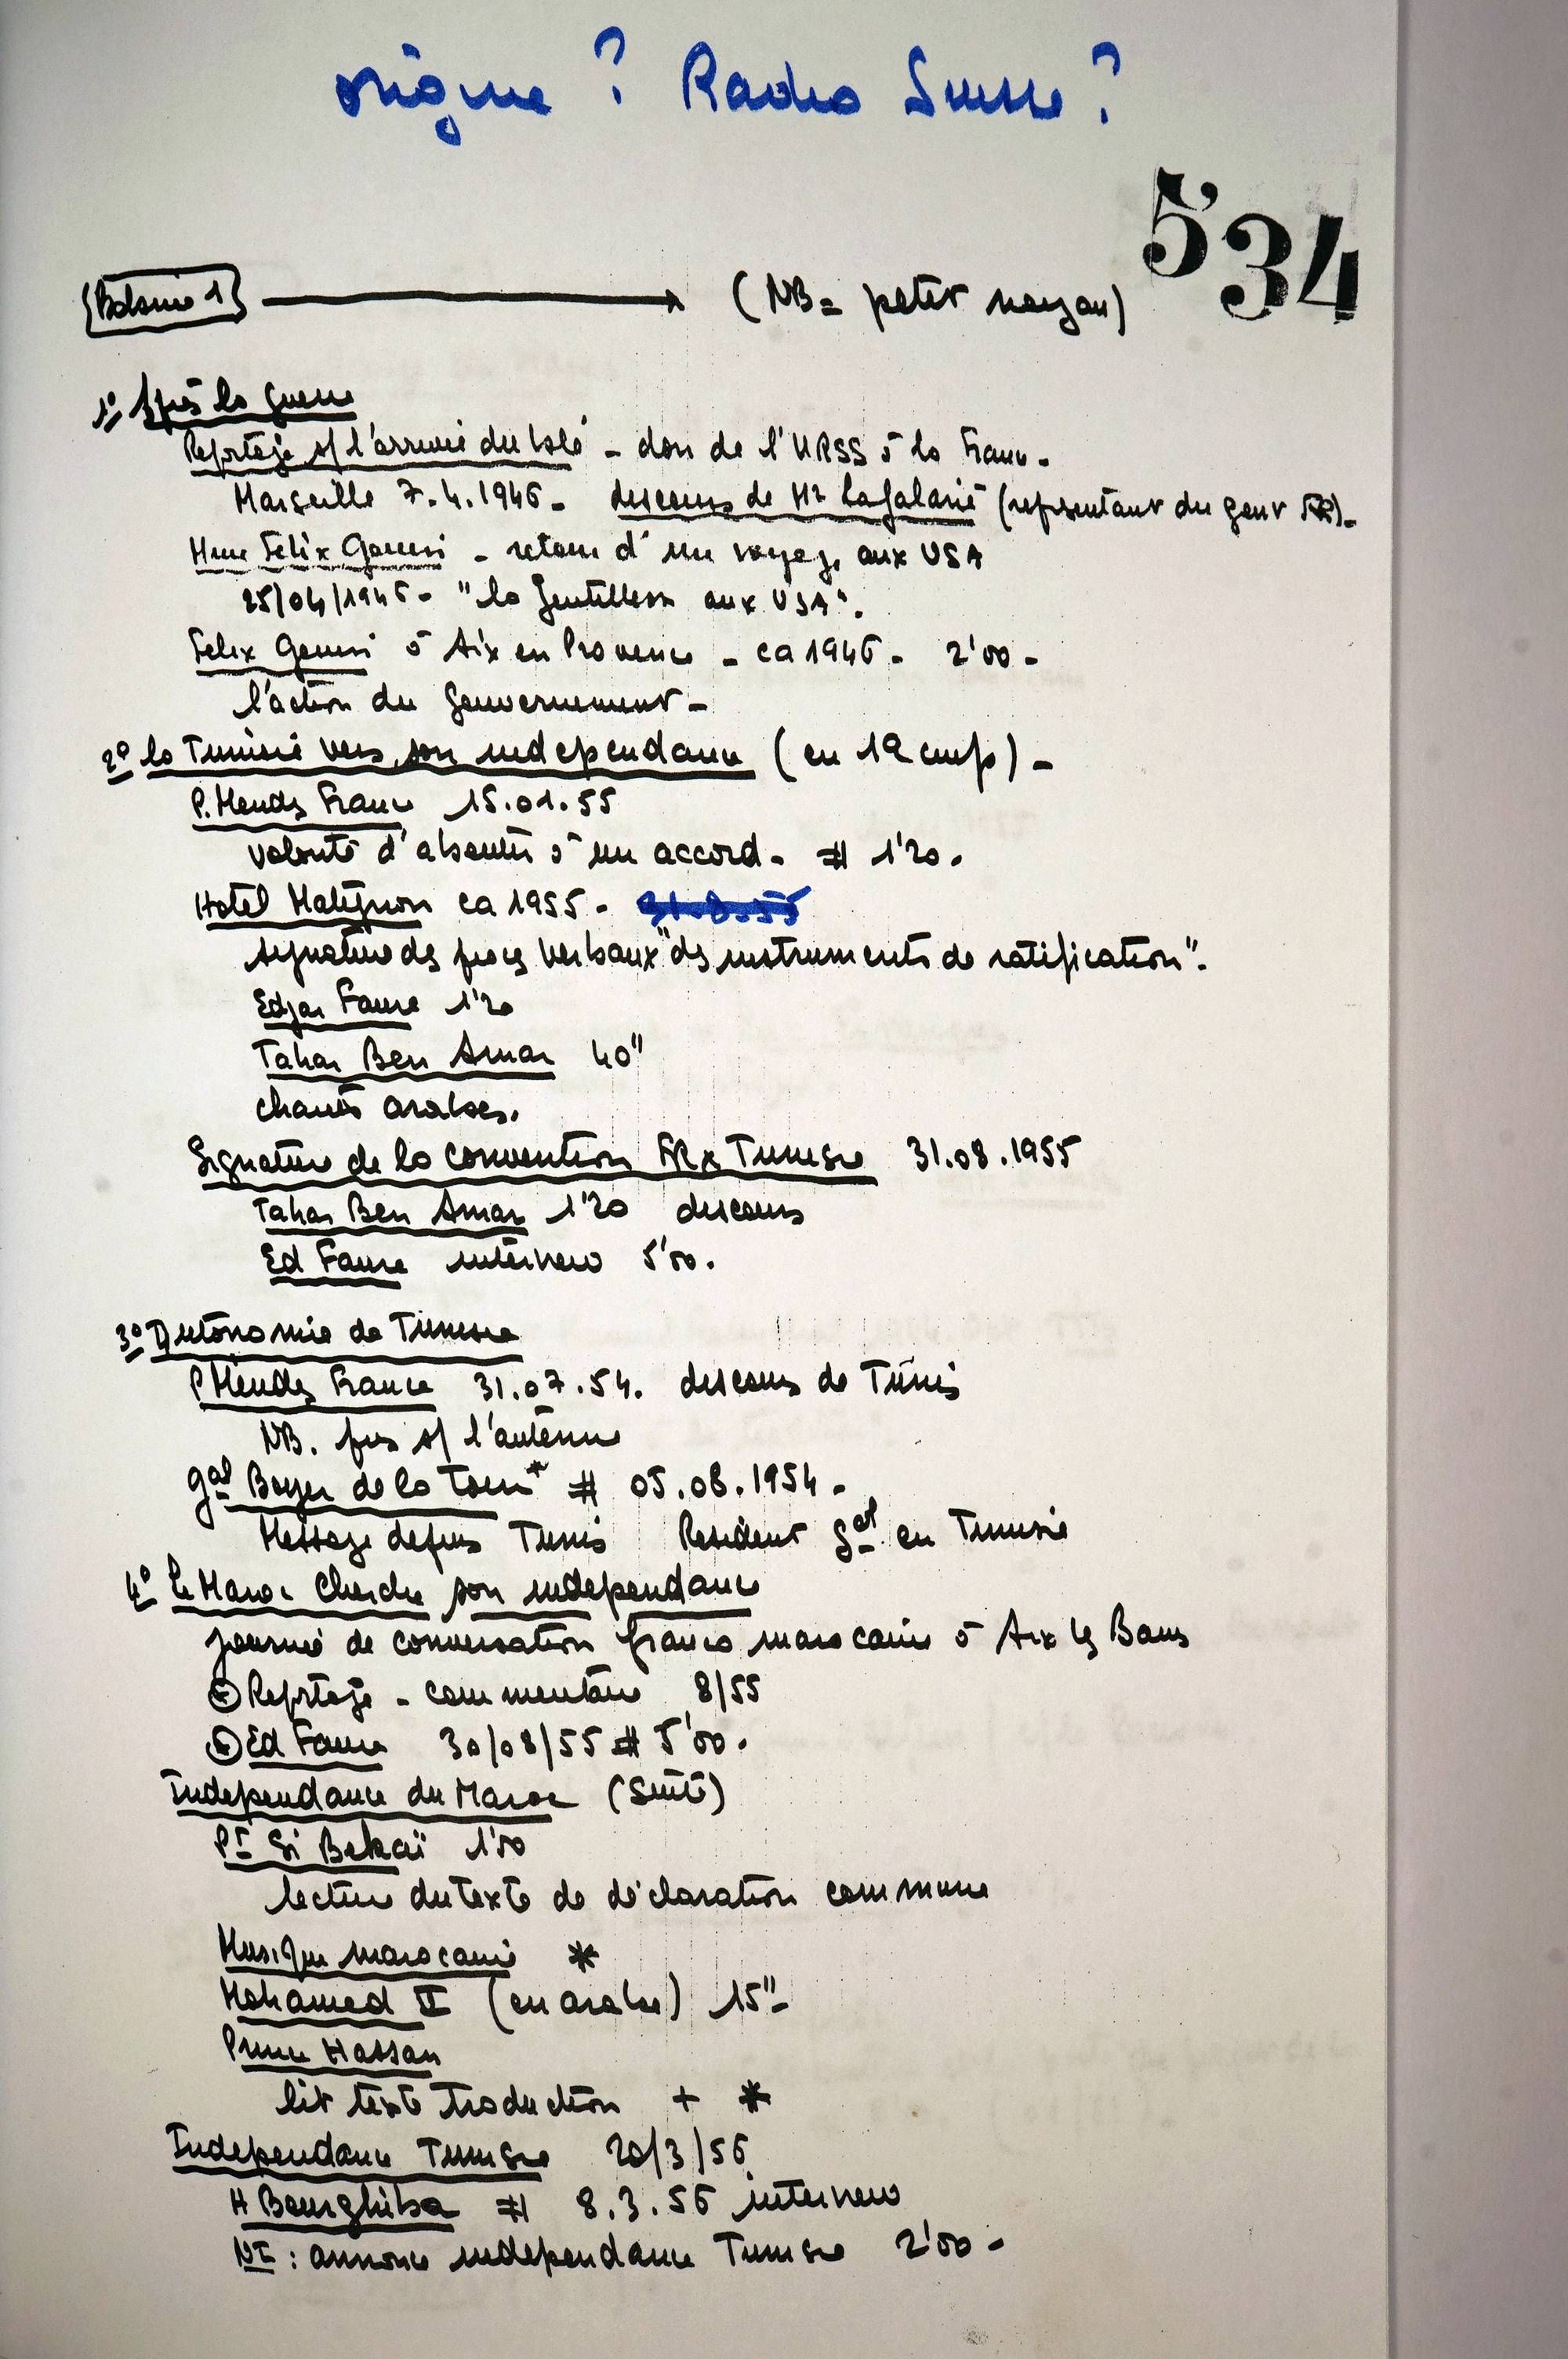 origine ? Radio Suisse ?
534
Bobine 1 → (NB = petit noyau)
1° Après la guerre
Reportage s/ l'arrivée du blé - don de l'URSS à la France -
Marseille 7.4.1946 - discours de Mr (représentant du gouv FR) -
Mme Felix Gouin - retour d'un voyage aux USA
25/04/1946 - "la gentillesse aux USA".
Felix Gouin à Aix en Provence - ca 1946 - 2'00 -
l'action du gouvernement -
2° la Tunisie vers son independance (en 19 cm/s) -
P. Mendes France 15.01.55
volonté d'aboutir à un accord - # 1'20.
Hotel Matignon ca 1955 - 31.8.55
signature des proces verbaux "des instruments de ratification".
Edgar Faure 1'20
Tahar Ben Amar 40"
chants arabes.
Signature de la convention FR x Tunisie 31.08.1955
Tahar Ben Amar 1'20 discours
Ed Faure interview 5'00.
3° Autonomie de Tunisie
P Mendes France 31.07.54. discours de Tunis
NB. pris s/ l'antenne
Gal Boyer de la Tour * # 05.08.1954 -
Message depuis Tunis Resident Gal en Tunisie
4° Le Maroc cherche son independance
journée de conversation franco marocaine à Aix les Bains
Reportage - commentaire 8/55
Ed Faure 30/08/55 # 5'00.
Independance du Maroc (Suite)
Pt Si Bekaï 1'50
lecture du texte de déclaration commune
Musique marocaine *
Mohamed V (en arabe) 15" -
Prince Hassan
lit texte traduction + *
Independance Tunisie 20/3/56
H Bourghiba # 8.3.56 interview
NI : annonce independance Tunisie 2'00 -